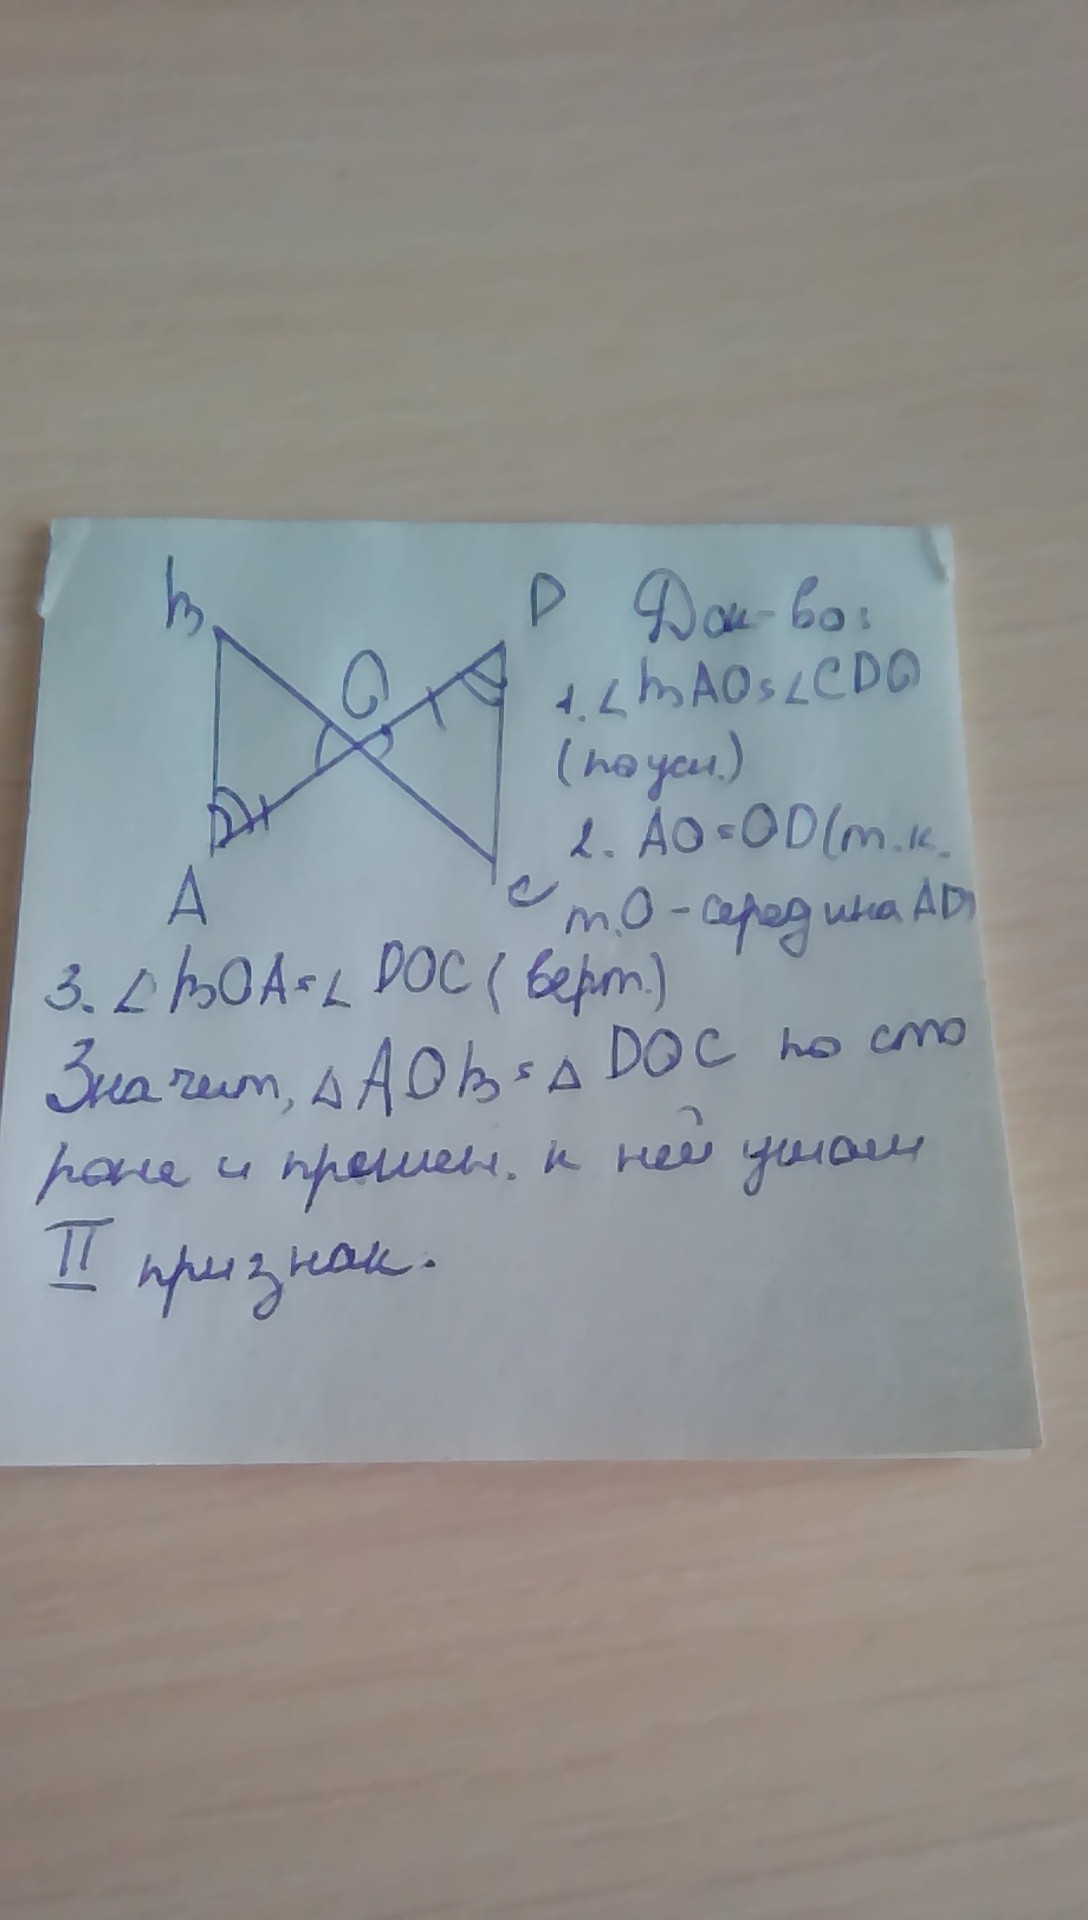 B
D
Док-во:
O
1. ∠BAO=∠CDO
(по усл.)
2. AO=OD(т.к.
A
C
т.O-середина AD)
3. ∠BOA=∠DOC (верт.)
Значит, △AOB=△DOC по сто
роне и прилеж. к ней углам
II признак.